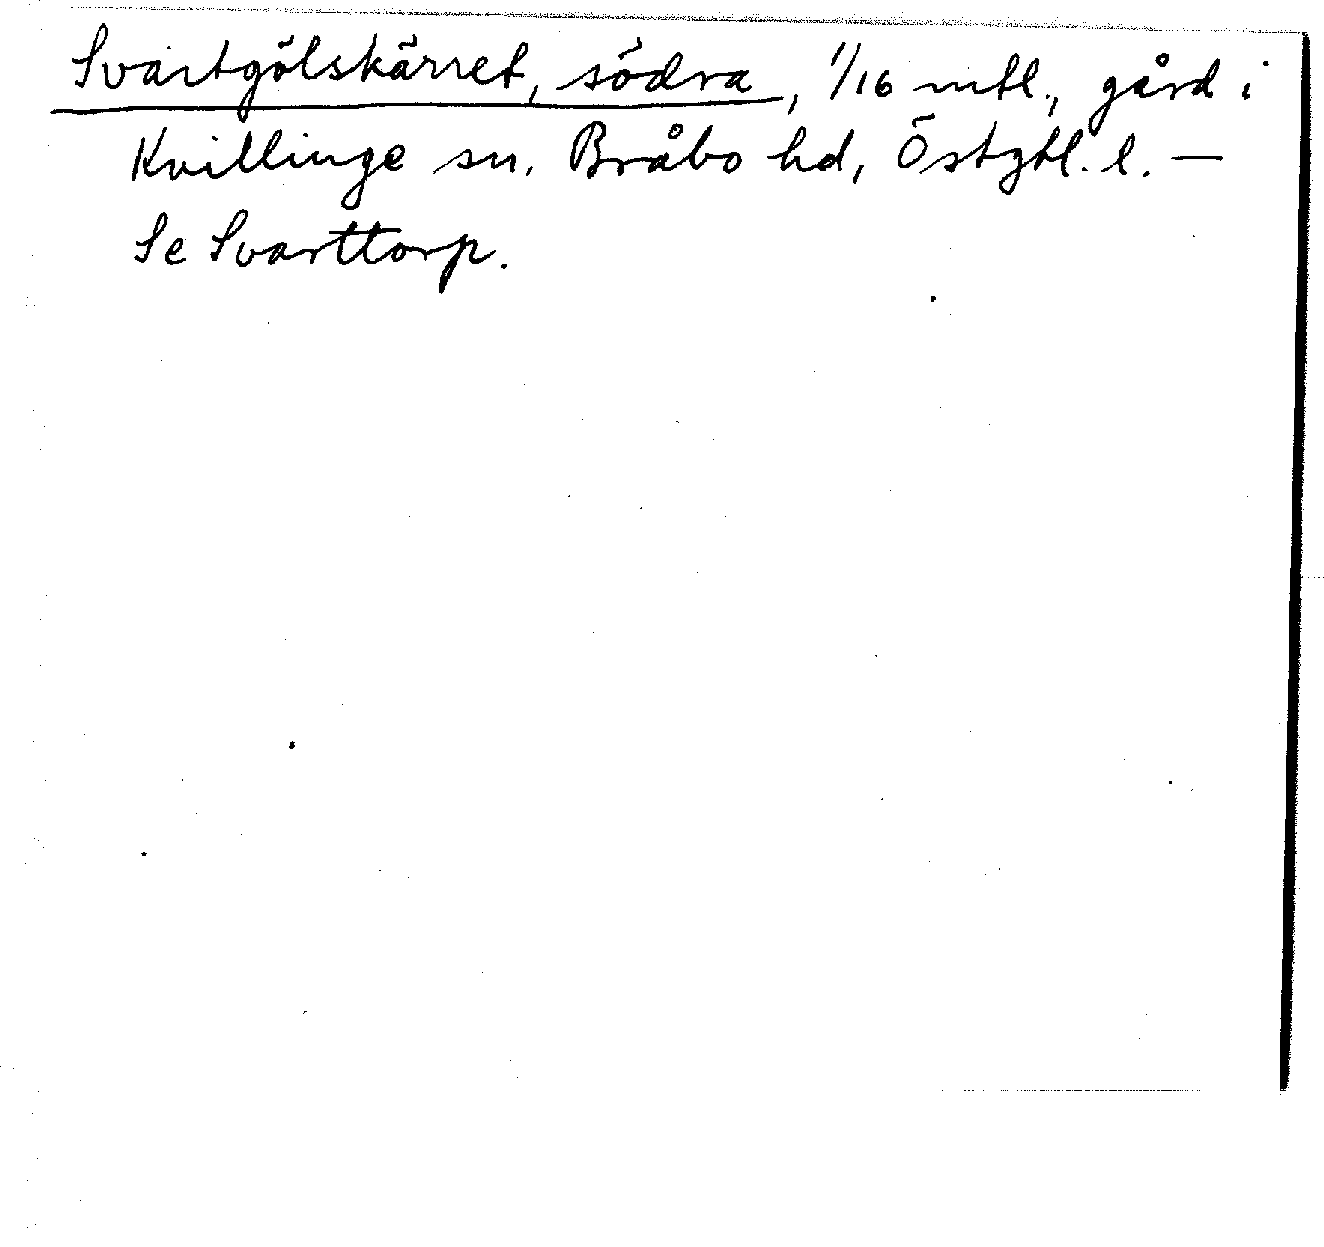 Svartgölskärret, södra, 1/16 mtl., gård i
Kvillinge sn, Bråbo hd, Östgtl. l. —
Se Svarttorp.